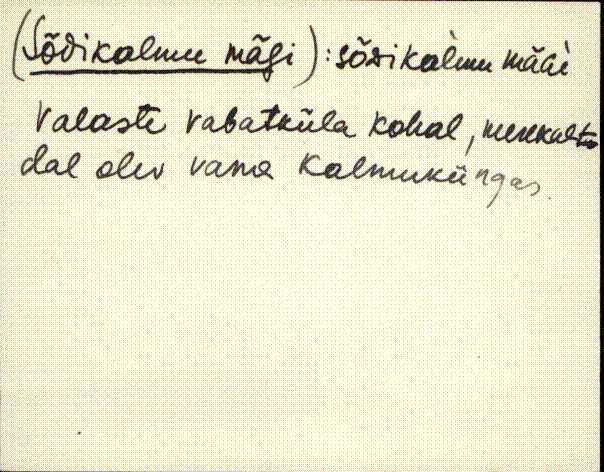 (Sõdikalmu mägi): sõdikalmu mäGi
Valaste vabatküla kohal, merekalda
dal olev vana kalmuküngas.